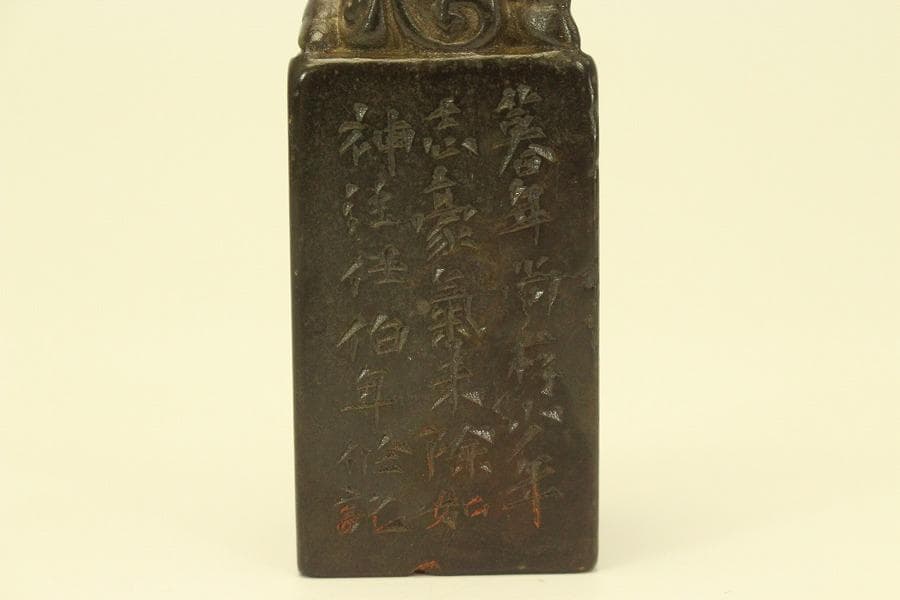 暮年尚存少年
志豪氣未除如
神任伯年作記